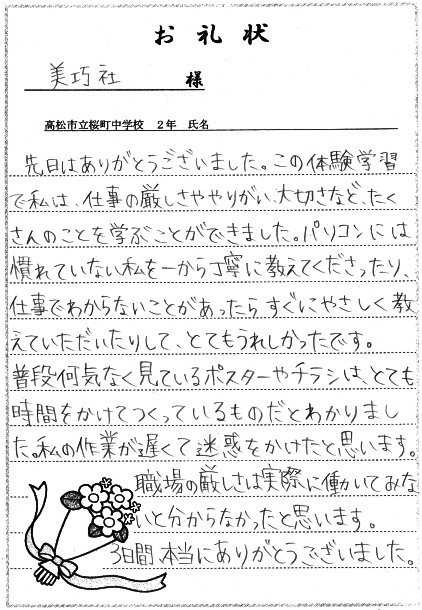 お礼状
美巧社 様
高松市立桜町中学校 2年 氏名
先日はありがとうございました。この体験学習
で私は、仕事の厳しさややりがい、大切さなど、たく
さんのことを学ぶことができました。パソコンには
慣れていない私を一から丁寧に教えてくださったり、
仕事でわからないことがあったらすぐにやさしく教
えていただいたりして、とてもうれしかったです。
普段何気なく見ているポスターやチラシは、とても
時間をかけてつくっているものだとわかりまし
た。私の作業が遅くて迷惑をかけたと思います。
職場の厳しさは実際に働いてみな
いと分からなかったと思います。
3日間、本当にありがとうございました。